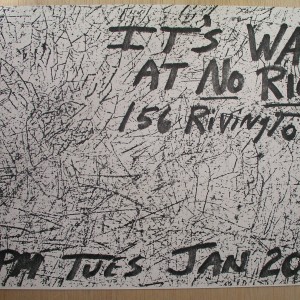 IT'S WA
AT NO RI
156 RIVINGTO
PM TUES JAN 20